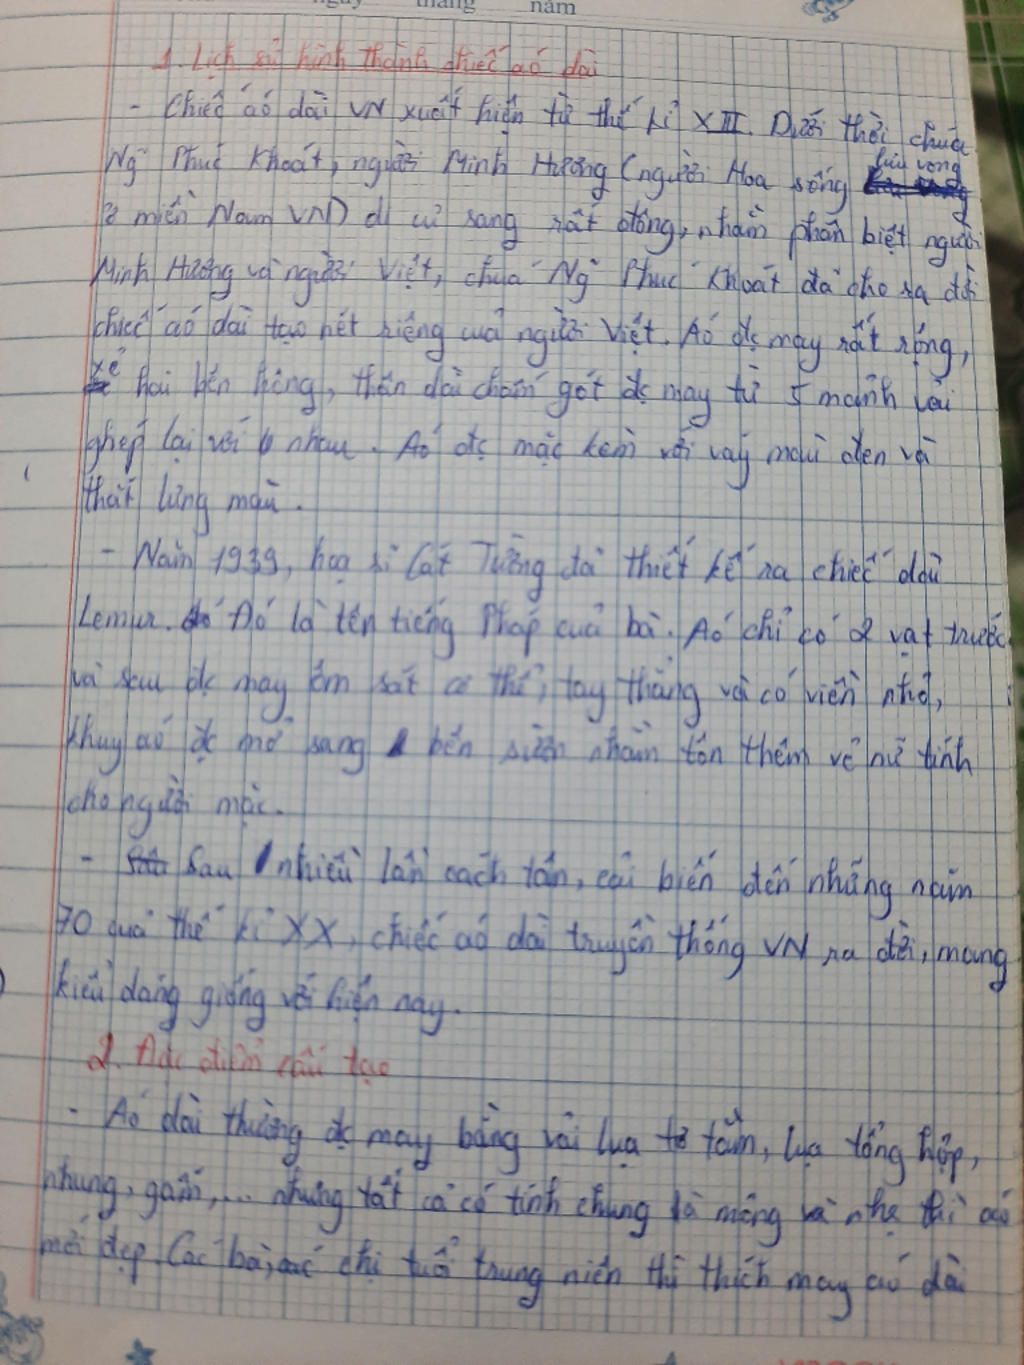 ngày tháng năm
1. Lịch sử hình thành chiếc áo dài
- Chiếc áo dài VN xuất hiện từ thế kỉ XIII. Dưới thời chúa
Ng Phúc Khoát, người Minh Hương (người Hoa sống lưu vong
ở miền Nam VN) di cư sang rất đông, nhằm phân biệt người
Minh Hương và người Việt, chúa Ng Phúc Khoát đã cho ra đời
chiếc áo dài tạo nét riêng của người Việt. Áo đc may rất rộng,
xẻ hai bên hông, thân dài chấm gót đc may từ 5 mảnh vải
ghép lại với nhau. Áo đc mặc kèm với váy màu đen và
thắt lưng màu.
- Năm 1939, họa sĩ Cát Tường đã thiết kế ra chiếc dài
Lemur. Đó là tên tiếng Pháp của bà. Áo chỉ có 2 vạt trước
và sau đc may ôm sát cơ thể, tay thẳng và có viền nhỏ,
khuy áo đc mở sang bên sườn nhằm tôn thêm vẻ nữ tính
cho người mặc.
- Sau nhiều lần cách tân, cải biến đến những năm
70 của thế kỉ XX, chiếc áo dài truyền thống VN ra đời, mang
kiểu dáng giống với hiện nay.
2. Đặc điểm cấu tạo
- Áo dài thường đc may bằng vải lụa tơ tằm, lụa tổng hợp,
nhung, gấm,... nhưng tất cả có tính chung là mỏng và nhẹ thì áo
mới đẹp. Các bà, các chị tuổi trung niên thì thích may áo dài